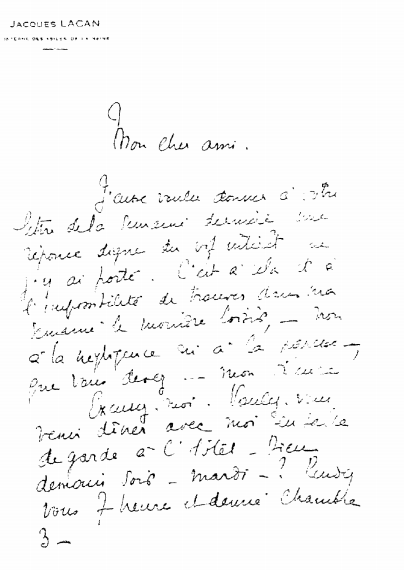 JACQUES LACAN
INTERNE DES ASILES DE LA SEINE
Mon cher ami.
J'eusse voulu donner à votre
lettre de la semaine dernière une
réponse digne du vif intérêt que
j'y ai porté. C'est à cela et à
l'impossibilité de trouver dans ma
semaine le moindre loisir, — non
à la négligence ni à la paresse —,
que vous devez — mon
Excusez-moi. Voulez-vous
venir dîner avec moi en salle
de garde à l'Hôtel-Dieu
demain soir - mardi - ? Rendez
vous 7 heure et demie Chambre
3 —